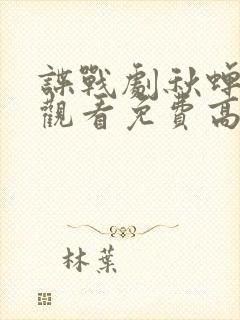 諜戰劇秋蟬
觀看免費高
林葉